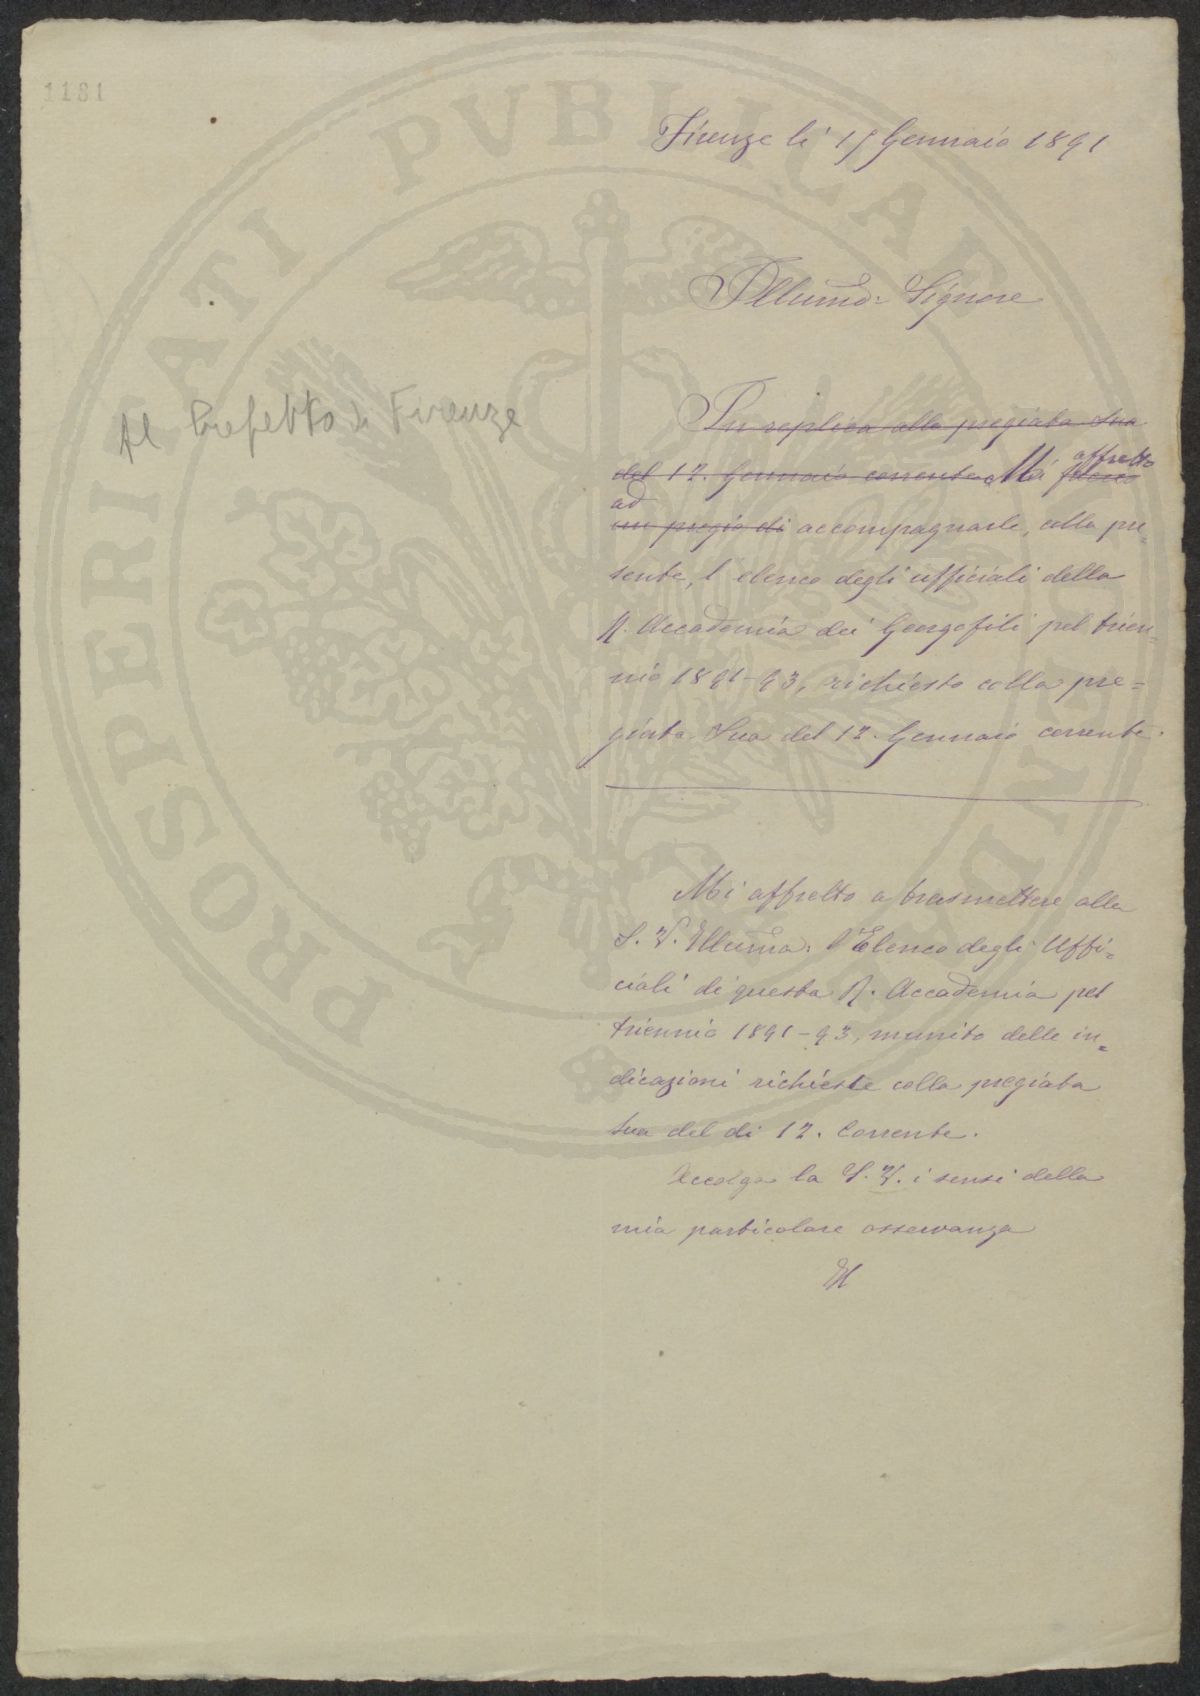 1181
Firenze li 15 Gennaio 1891
Illumo: Signore
Al Prefetto di Firenze
In replica alla pregiata Sua
del 12. Gennaio corrente Mi affretto
ad
un pregio di accompagnarle, colla pre=
sente, l'elenco degli ufficiali della
R. Accademia dei Georgofili pel trien=
nio 1891-93, richiesto colla pre=
giata Sua del 12. Gennaio corrente.
Mi affretto a trasmettere alla
S. V. Illuma: l'Elenco degli Uffi=
ciali di questa R. Accademia pel
triennio 1891-93, munito delle in=
dicazioni richieste colla pregiata
sua del di 12. Corrente.
Accolga la S. V. i sensi della
mia particolare osservanza
Il
PROSPERITATI PVBLICAE AVGENDAE